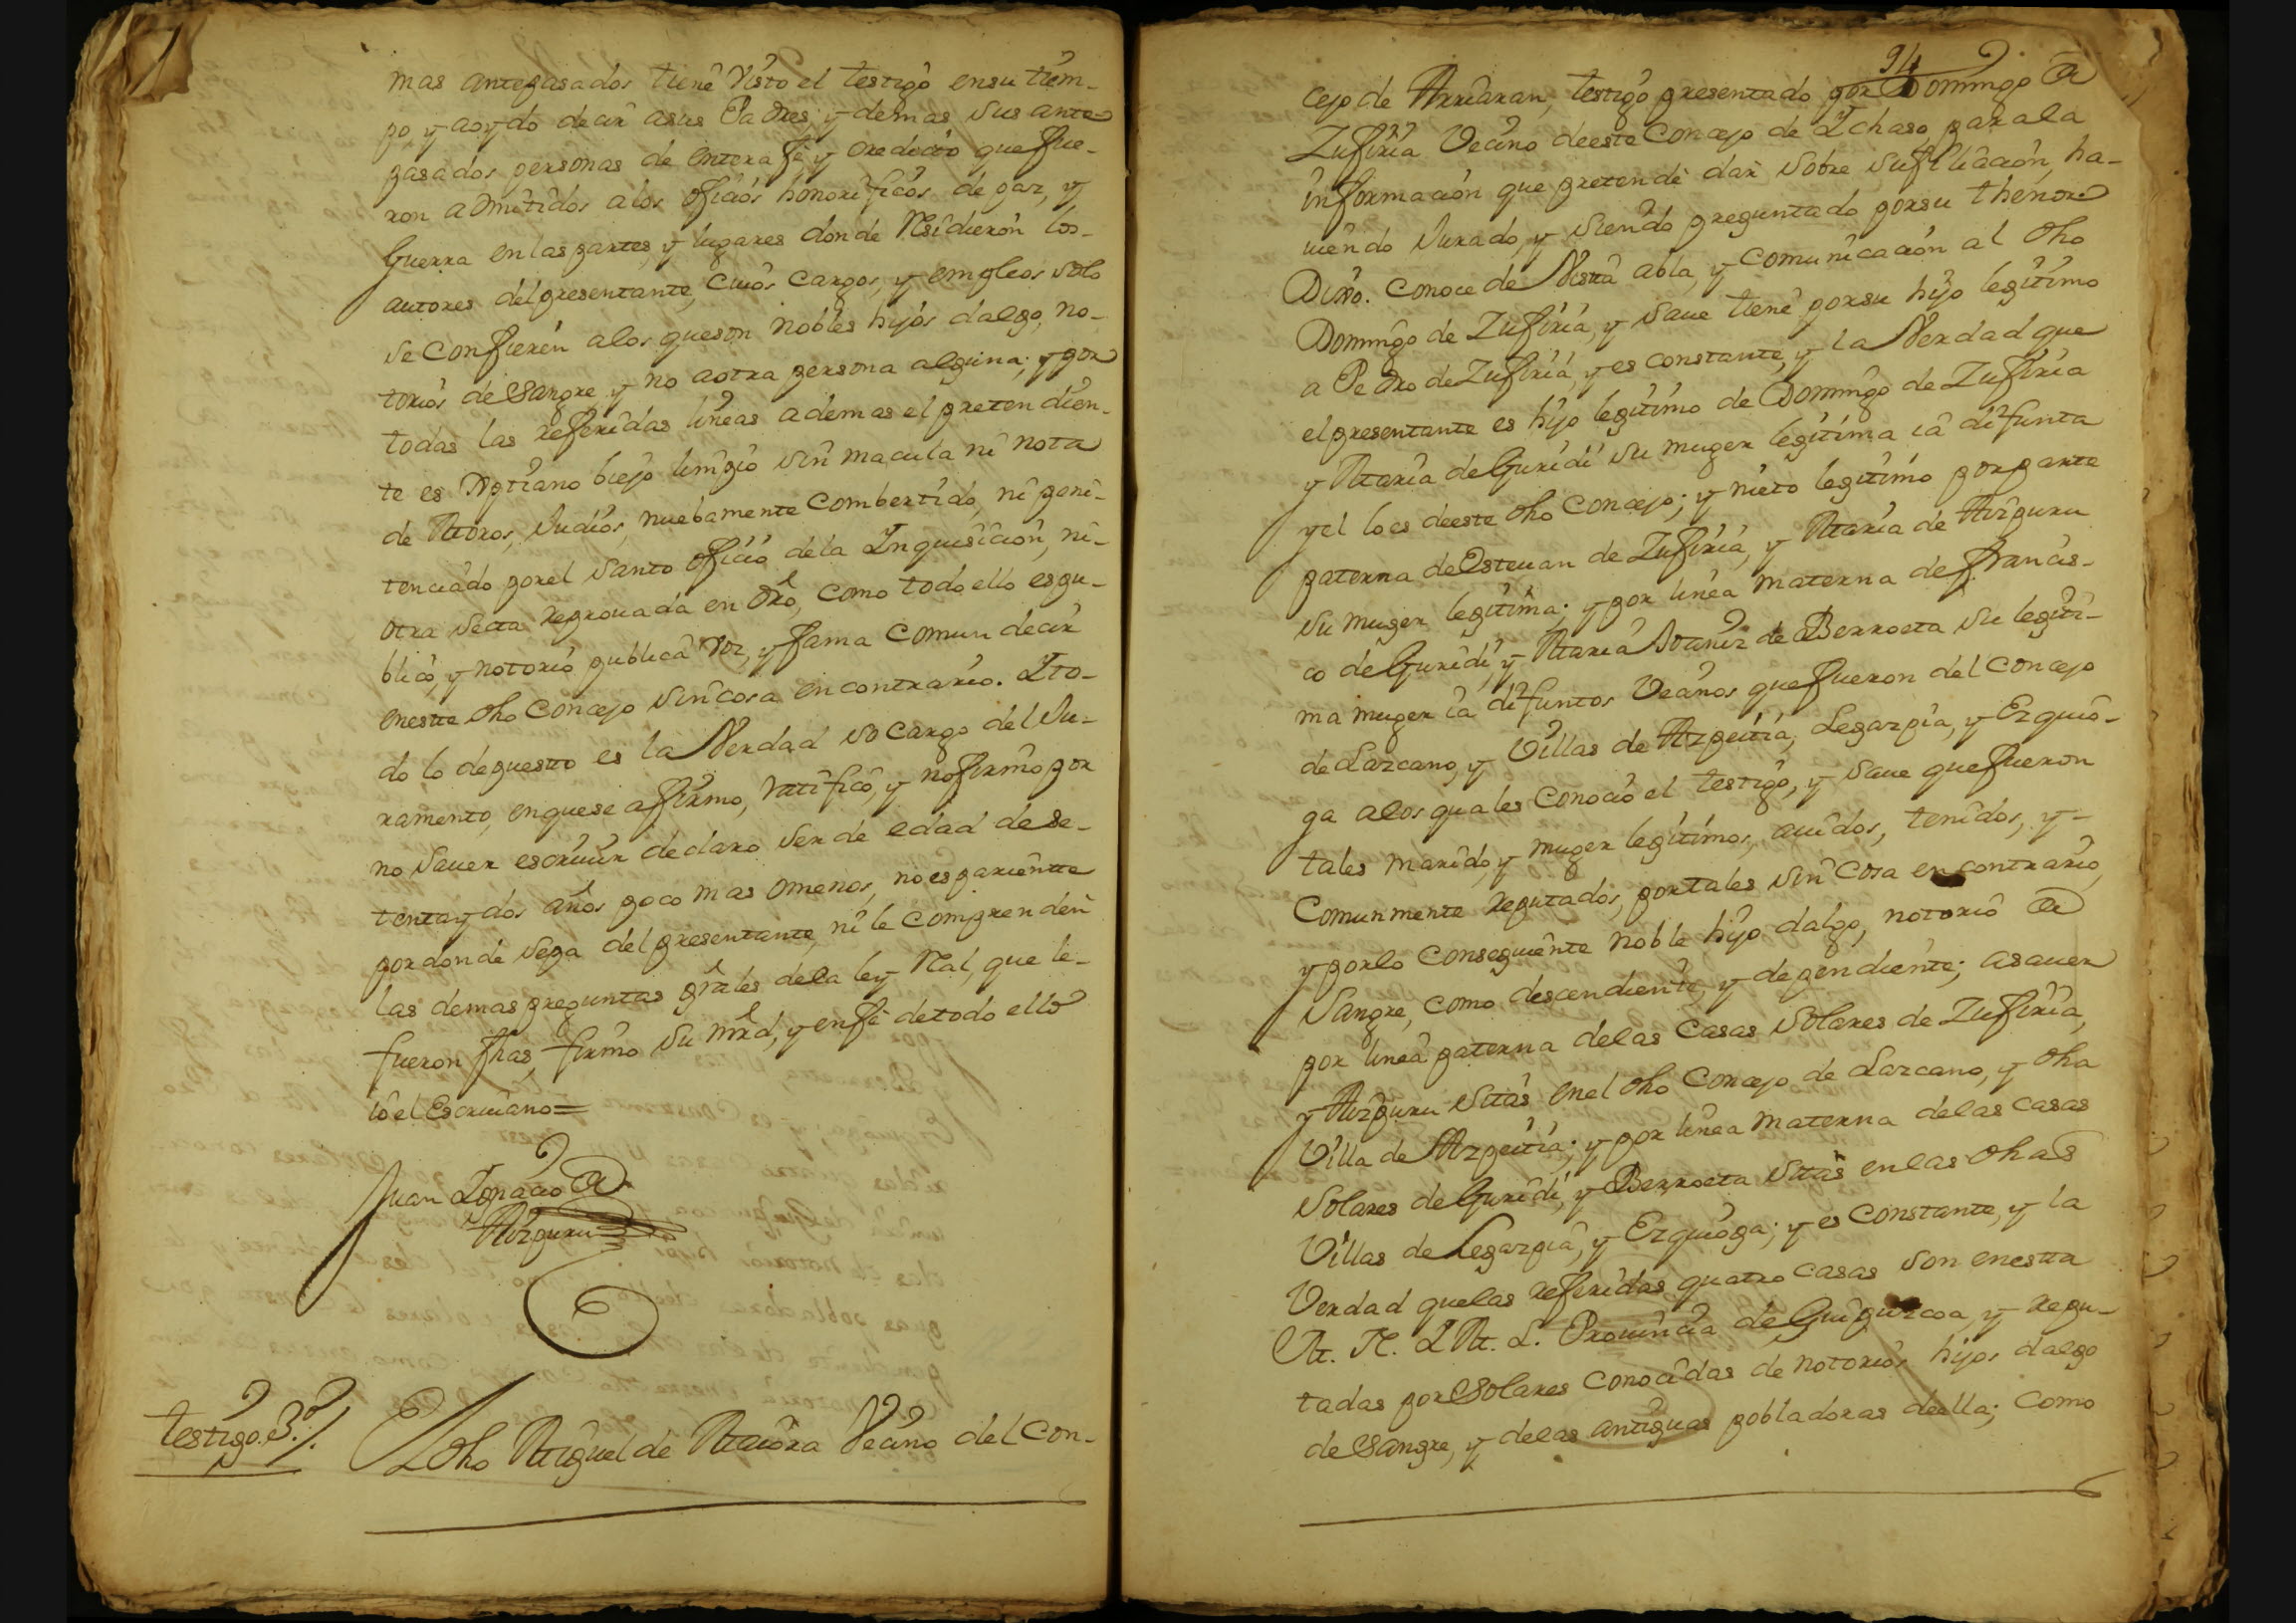 mas antepasados tiene visto el testigo ensu tiem-
po, y aoydo decir asus Padres, y demas sus ante-
pasados personas de entera fè y credicto que fue-
ron admitidos alos oficios honorificos de paz, y
Guerra en las partes, y lugares donde Residieron los-
autores del presentante, cuios cargos, y empleos solo
se Confieren alos que son nobles hijos dalgo, no-
torios de Sangre y no aotra persona alguna; y por
todas las referidas lineas ademas el pretendien-
te es Xptiano biejo limpio sin macula ni nota
de Moros, Judios, nuebamente Combertido, ni peni-
tenciado por el Santo oficio dela Inquisicion, ni-
otra secta reprouada en dro, como todo ello es pu-
blico, y notorio publica voz, y fama comun decir
eneste dho Concejo sin cosa en contrario. Y to-
do lo depuesto es la Verdad so cargo del Ju-
ramento, en que se affirmo, ratificò, y nofirmo por
no sauer escriuir declaro ser de edad de se-
tenta y dos años poco mas omenos, no es pariente
por donde sepa del presentante, ni le comprenden
las demas preguntas grales dela ley Real, que le-
fueron fhas, firmo su mrd, y enfè de todo ello
io el Escriuano=
Juan Ignacio de
Aizpuru
testigo. 3.º/. El dho Miguel de Maiora Vecino del Con-
94
cejo de Arriaran, testigo presentado por Domingo de
Zufiria Vecino deeste Concejo de Ychaso, para la
informacion que pretende dar sobre sufiliacion, ha-
uiendo Jurado, y siendo preguntado por su thenor
Dixo. Conoce de Vista abla, y comunicacion al dho
Domingo de Zufiria, y saue tiene por su hijo legitimo
a Pedro de Zufiria, y es constante, y la Verdad que
el presentante es hijo legitimo de Domingo de Zufiria
y Maria de Guridi su muger legitima ia difunta
y el lo es deeste dho Concejo; y nieto legitimo por parte
paterna de Esteuan de Zufiria, y Maria de Aizpuru
su muger legitima; y por linea materna de francis-
co de Guridi, y Maria Ioaniz de Berroeta su legiti-
ma muger ia difuntos Vecinos que fueron del concejo
de Lazcano, y Villas de Azpeitia, Legazpia, y Ezquio-
ga alos quales conociò el testigo, y saue que fueron
tales marido, y muger legitimos, auidos, tenidos, y-
Comunmente reputados, por tales sin cosa en contrario,
y por lo conseguiente noble hijo dalgo, notorio de
Sangre, como descendiente, y dependiente; asauer
por linea paterna delas Casas Solares de Zufiria,
y Aizpuru sitas enel dho Concejo de Lazcano, y dha
Villa de Azpeitia; y por linea materna delas casas
Solares de Guridi, y Berroeta sitas enlas dhas
Villas de Legazpia, y Ezquioga; y es constante, y la
Verdad quelas referidas quatro casas son enesta
M. N. Y M. L. Prouincia de Guipuzcoa, y repu-
tadas por Solares conocidas de notorios hijos dalgo
de Sangre, y delas antiguas pobladoras deella; como